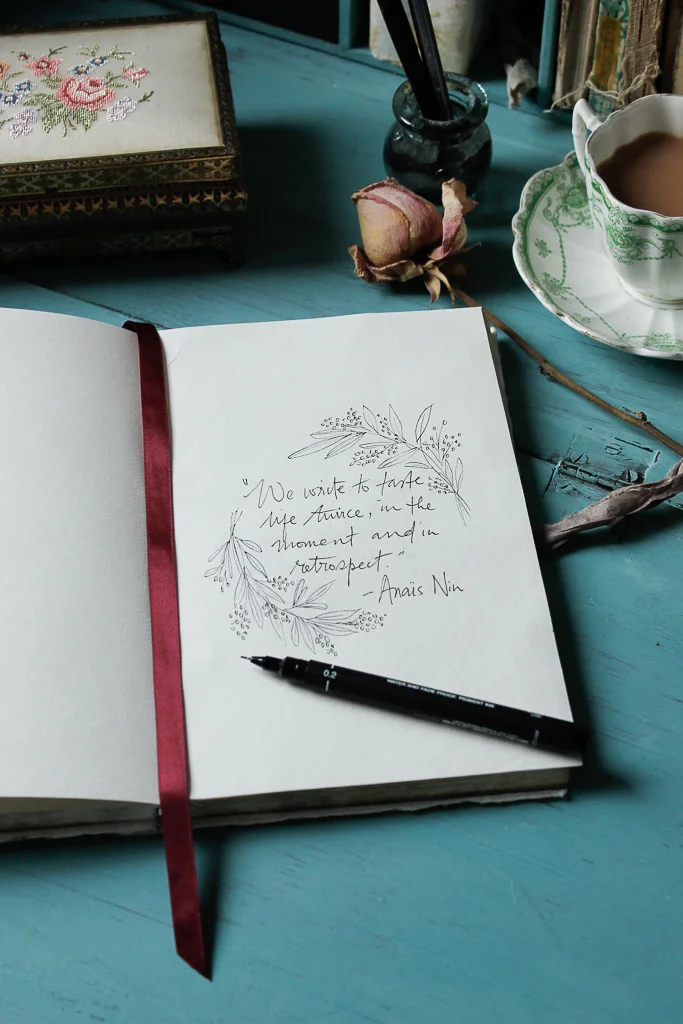 "We write to taste
life twice, in the
moment and in
retrospect."
-Anaïs Nin
0.2
WATER AND FADE PROOF, PIGMENT INK